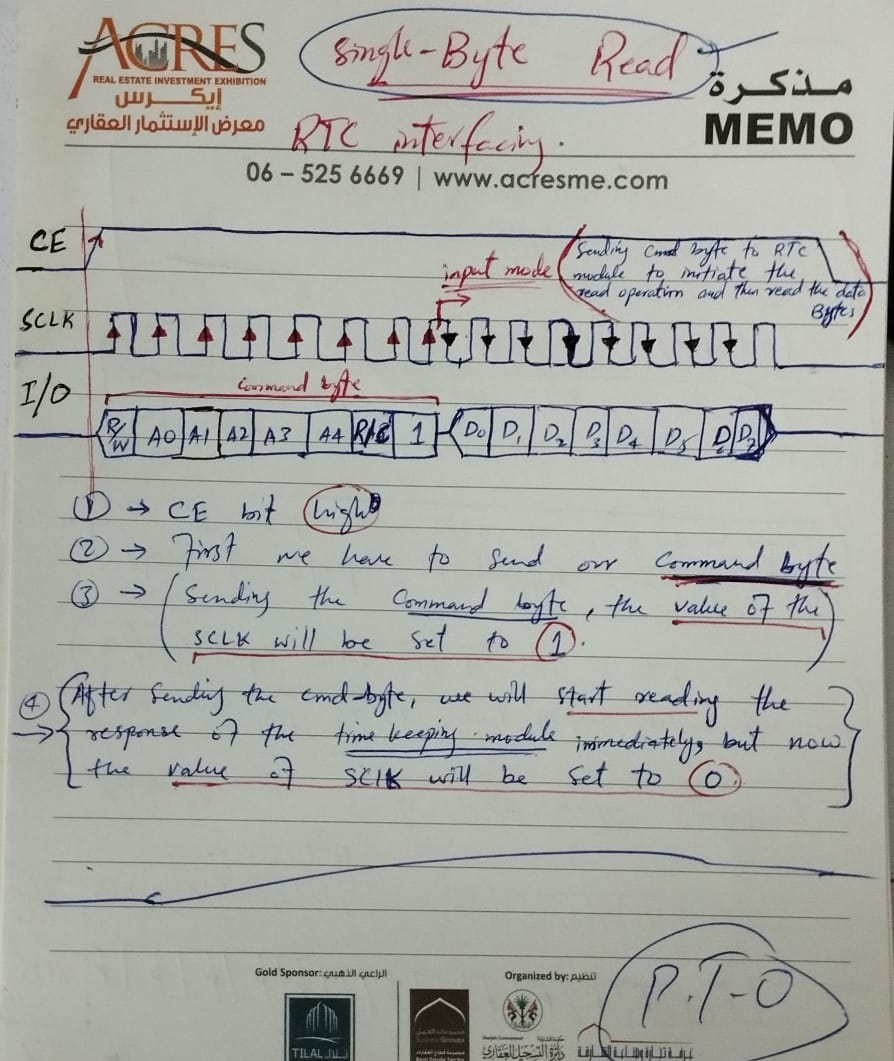 ACRES
REAL ESTATE INVESTMENT EXHIBITION
إيكرس
معرض الإستثمار العقاري
Single-Byte Read
RTC interfacing.
مذكرة
MEMO
06 – 525 6669 | www.acresme.com
CE
Sending Cmd byte to RTC
module to initiate the
read operation and then read the data
Bytes
input mode
SCLK
I/O
Command byte
R/W A0 A1 A2 A3 A4 R/C 1 D0 D1 D2 D3 D4 D5 D6 D7
① → CE bit high
② → First we have to send our Command byte
③ → (Sending the Command byte, the value of the
SCLK will be set to 1.)
④ → {After sending the cmd-byte, we will start reading the
response of the time keeping module immediately, but now
the value of SCLK will be set to 0}
P.T-O
Gold Sponsor: الراعي الذهبي
Organized by: تنظيم
TILAL تلال
دائرة التسجيل العقاري